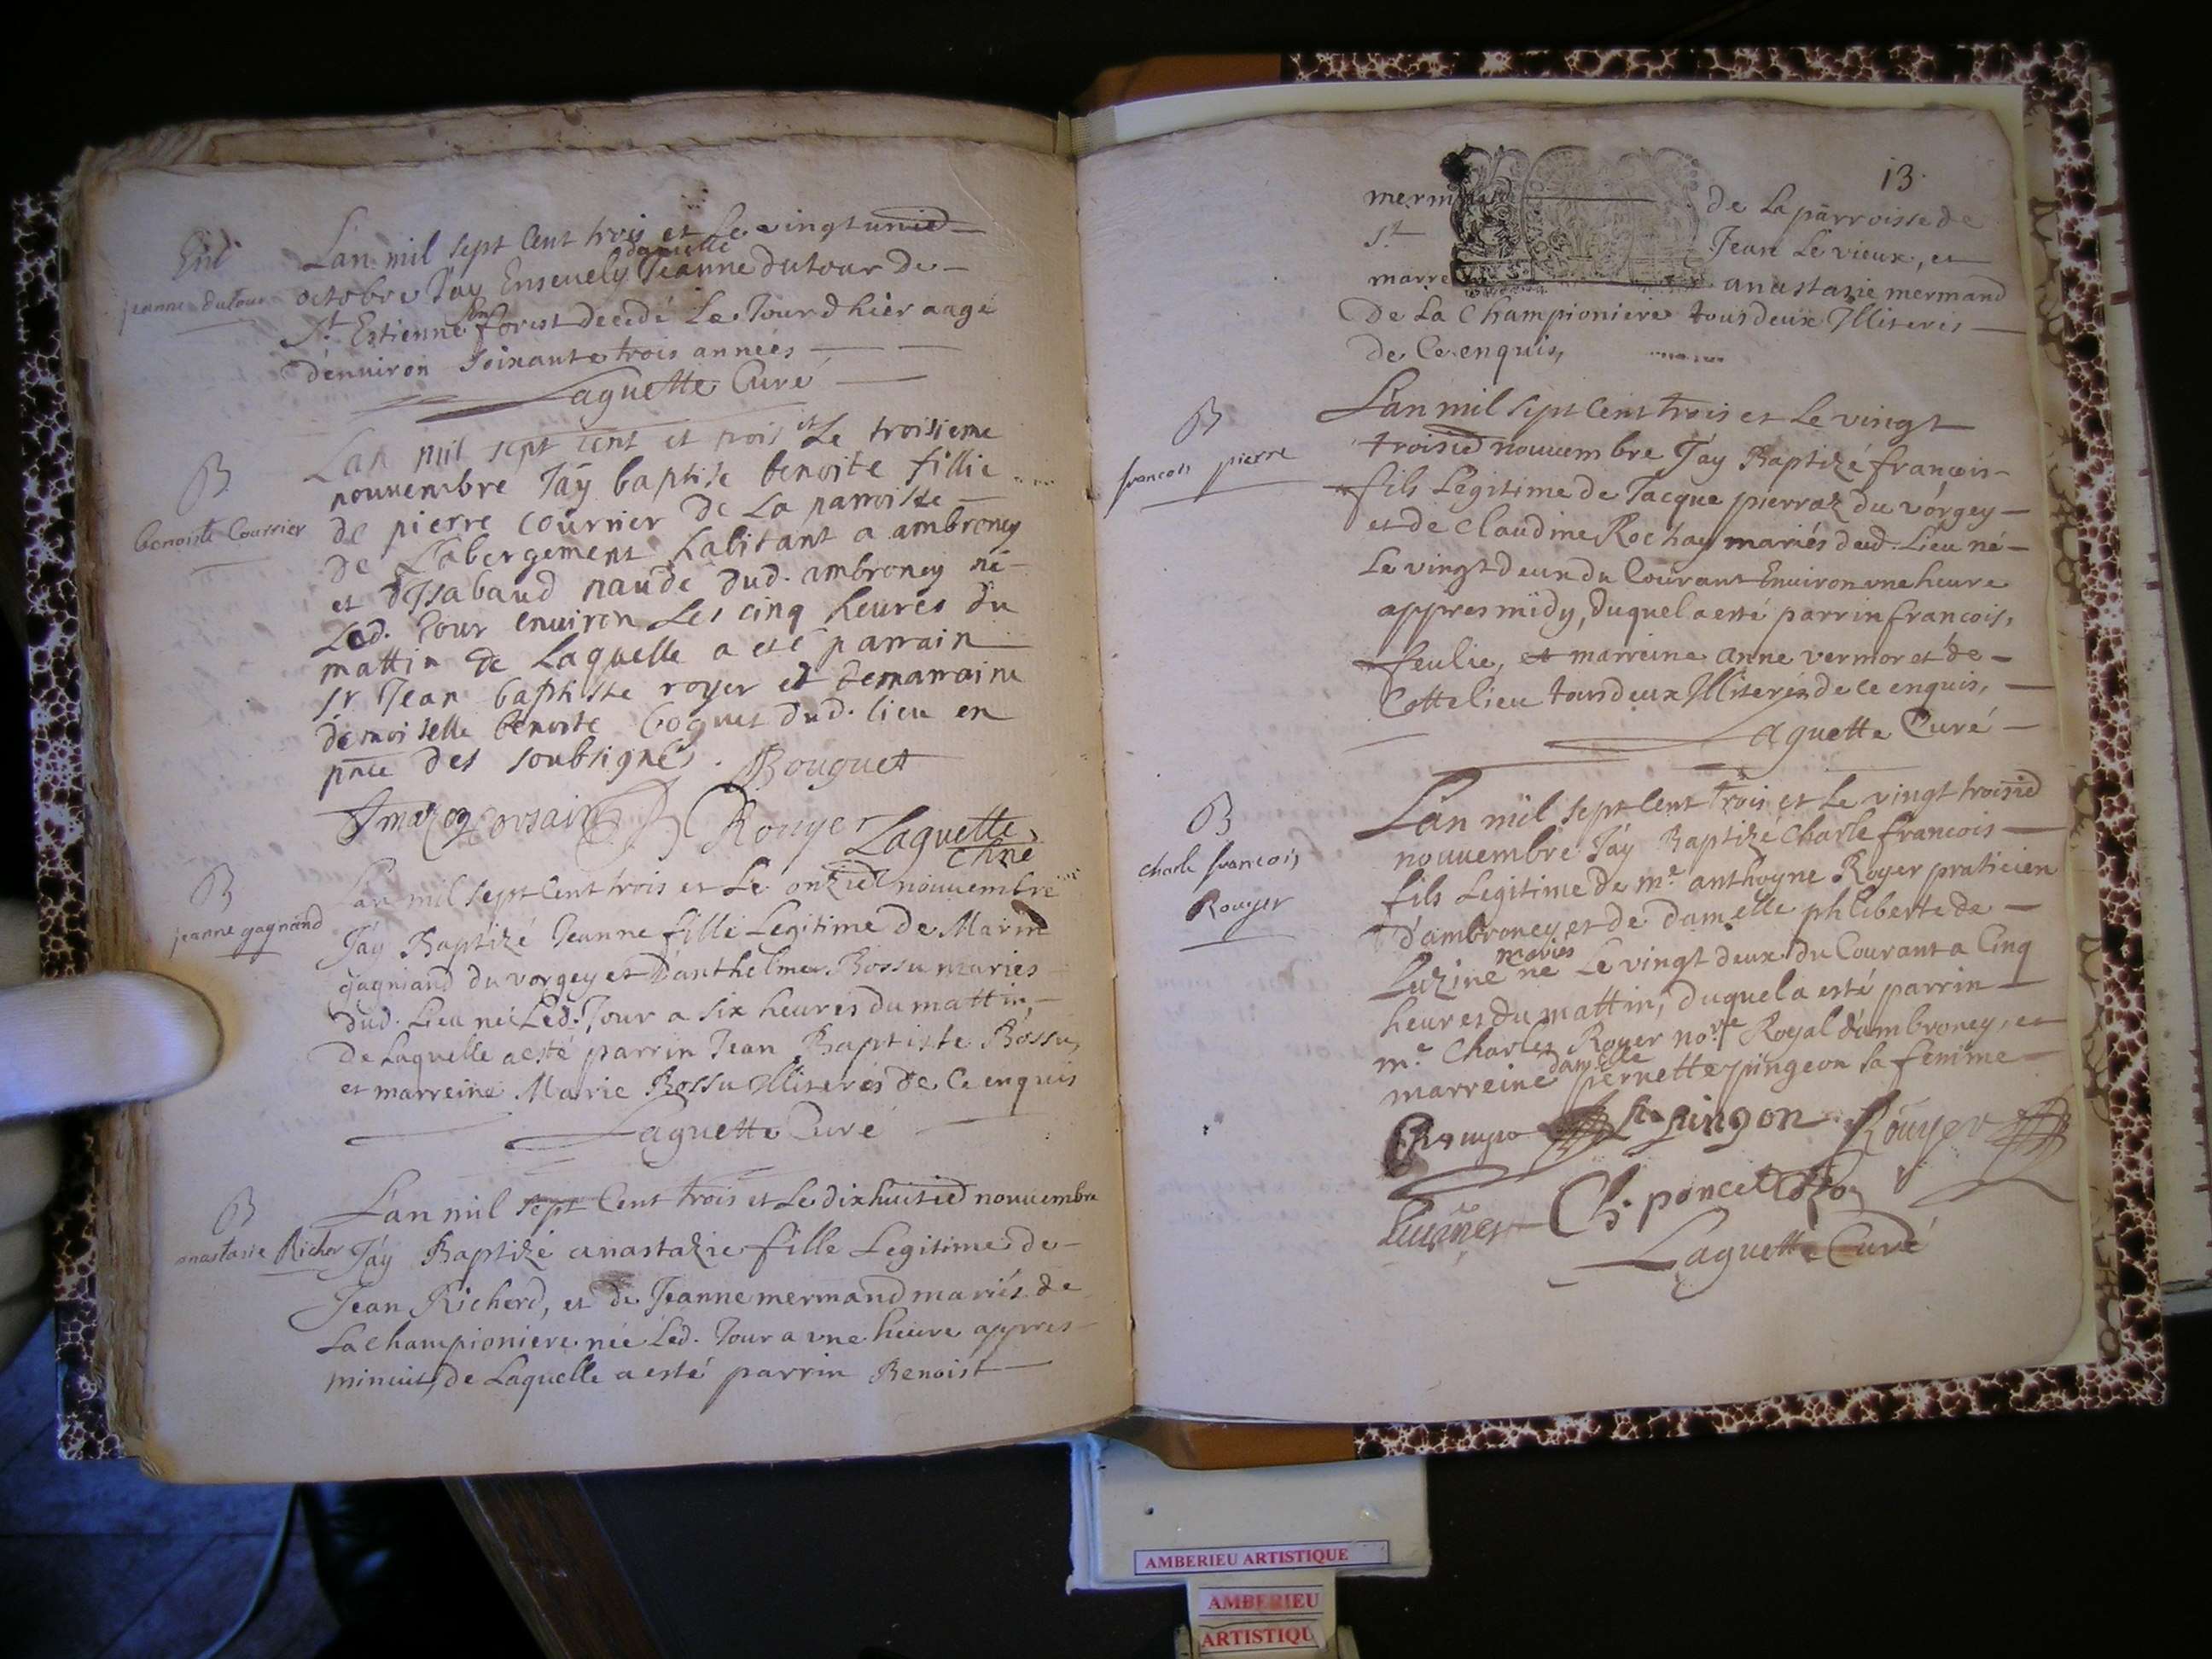 Ent
jeanne dutour
L'an mil sept Cent trois et Le vingtunied
octobre J'ay Enseuely damelle Jeanne dutour de
St Estienne en forest decedé Le Jour d hier aagé
d'enuiron soixante trois années
Laguette Curé
B
benoiste Courrier
Lan mil sept cent et trois et Le troisieme
nouuembre Jay baptise benoite fillie
de pierre cournier de La parroisse
de L'abergement habitant a ambroney
et d'Isabaud naude dud. ambroney né
Led. Jour enuiron Les cinq heures du
mattin de Laquelle a esté parrain
sr Jean baptiste royer et demarraine
demoiselle benoite boquet dud. lieu en
pnce des soubsignés. Bouguet
Rouyer Laguette
Curé
B
jeanne gagnand
L'an mil sept Cent trois et Le onzied nouuembre
J'ay Baptizé Jeanne fille Legitime de Marin
gagniand du vorgey et D'anthelmea Bossu mariés
dud. Lieu née Led. Jour a six heures du mattin
de Laquelle a esté parrin Jean Baptiste Bossu,
et marreine Marie Bossu Illiterés de Ce enquis
Laguette Curé
B
anastasie Richer
L'an mil sept Cent trois et Le dixhuitied nouuembre
J'ay Baptizé anastazie fille Legitime de
Jean Richerd, et de Jeanne mermand mariés de
La championiere née Led. Jour a vne heure appres
minuit, de Laquelle a esté parrin Benoist
13.
mermand de La parroisse de
St Jean Le vieux, et
marreine anastazie mermand
de La Championiere tous deux Illiterés
de Ce enquis,
B
francois pierre
L'an mil sept Cent trois et Le vingt
troisied nouuembre J'ay Baptizé francois
fils Legitime de Jacque pierraz du vorgey
et de Claudine Rochay mariés dud. Lieu né
Le vingt deux du Courant Enuiron vne heure
appres midy, duquel a esté parrin francois,
feulie, et marreine anne vermoret de
Cottelieu tous deux Illiterés de ce enquis,
Laguette Curé
B
charle francois
Rouyer
L'an mil sept Cent trois et Le vingt troisied
nouuembre J'ay Baptizé Charle francois
fils Legitime de me anthoyne Royer praticien
d'ambroney et de damelle philiberte de
Luzine mariés né Le vingt deux du Courant a Cinq
heures du mattin, duquel a esté parrin
me Charles Royer nore Royal d'ambroney, et
marreine damelle pernette pingeon sa femme
pingon Rouyer
Ch. poncet
Laguette Curé
AMBERIEU ARTISTIQUE
AMBERIEU
ARTISTIQU